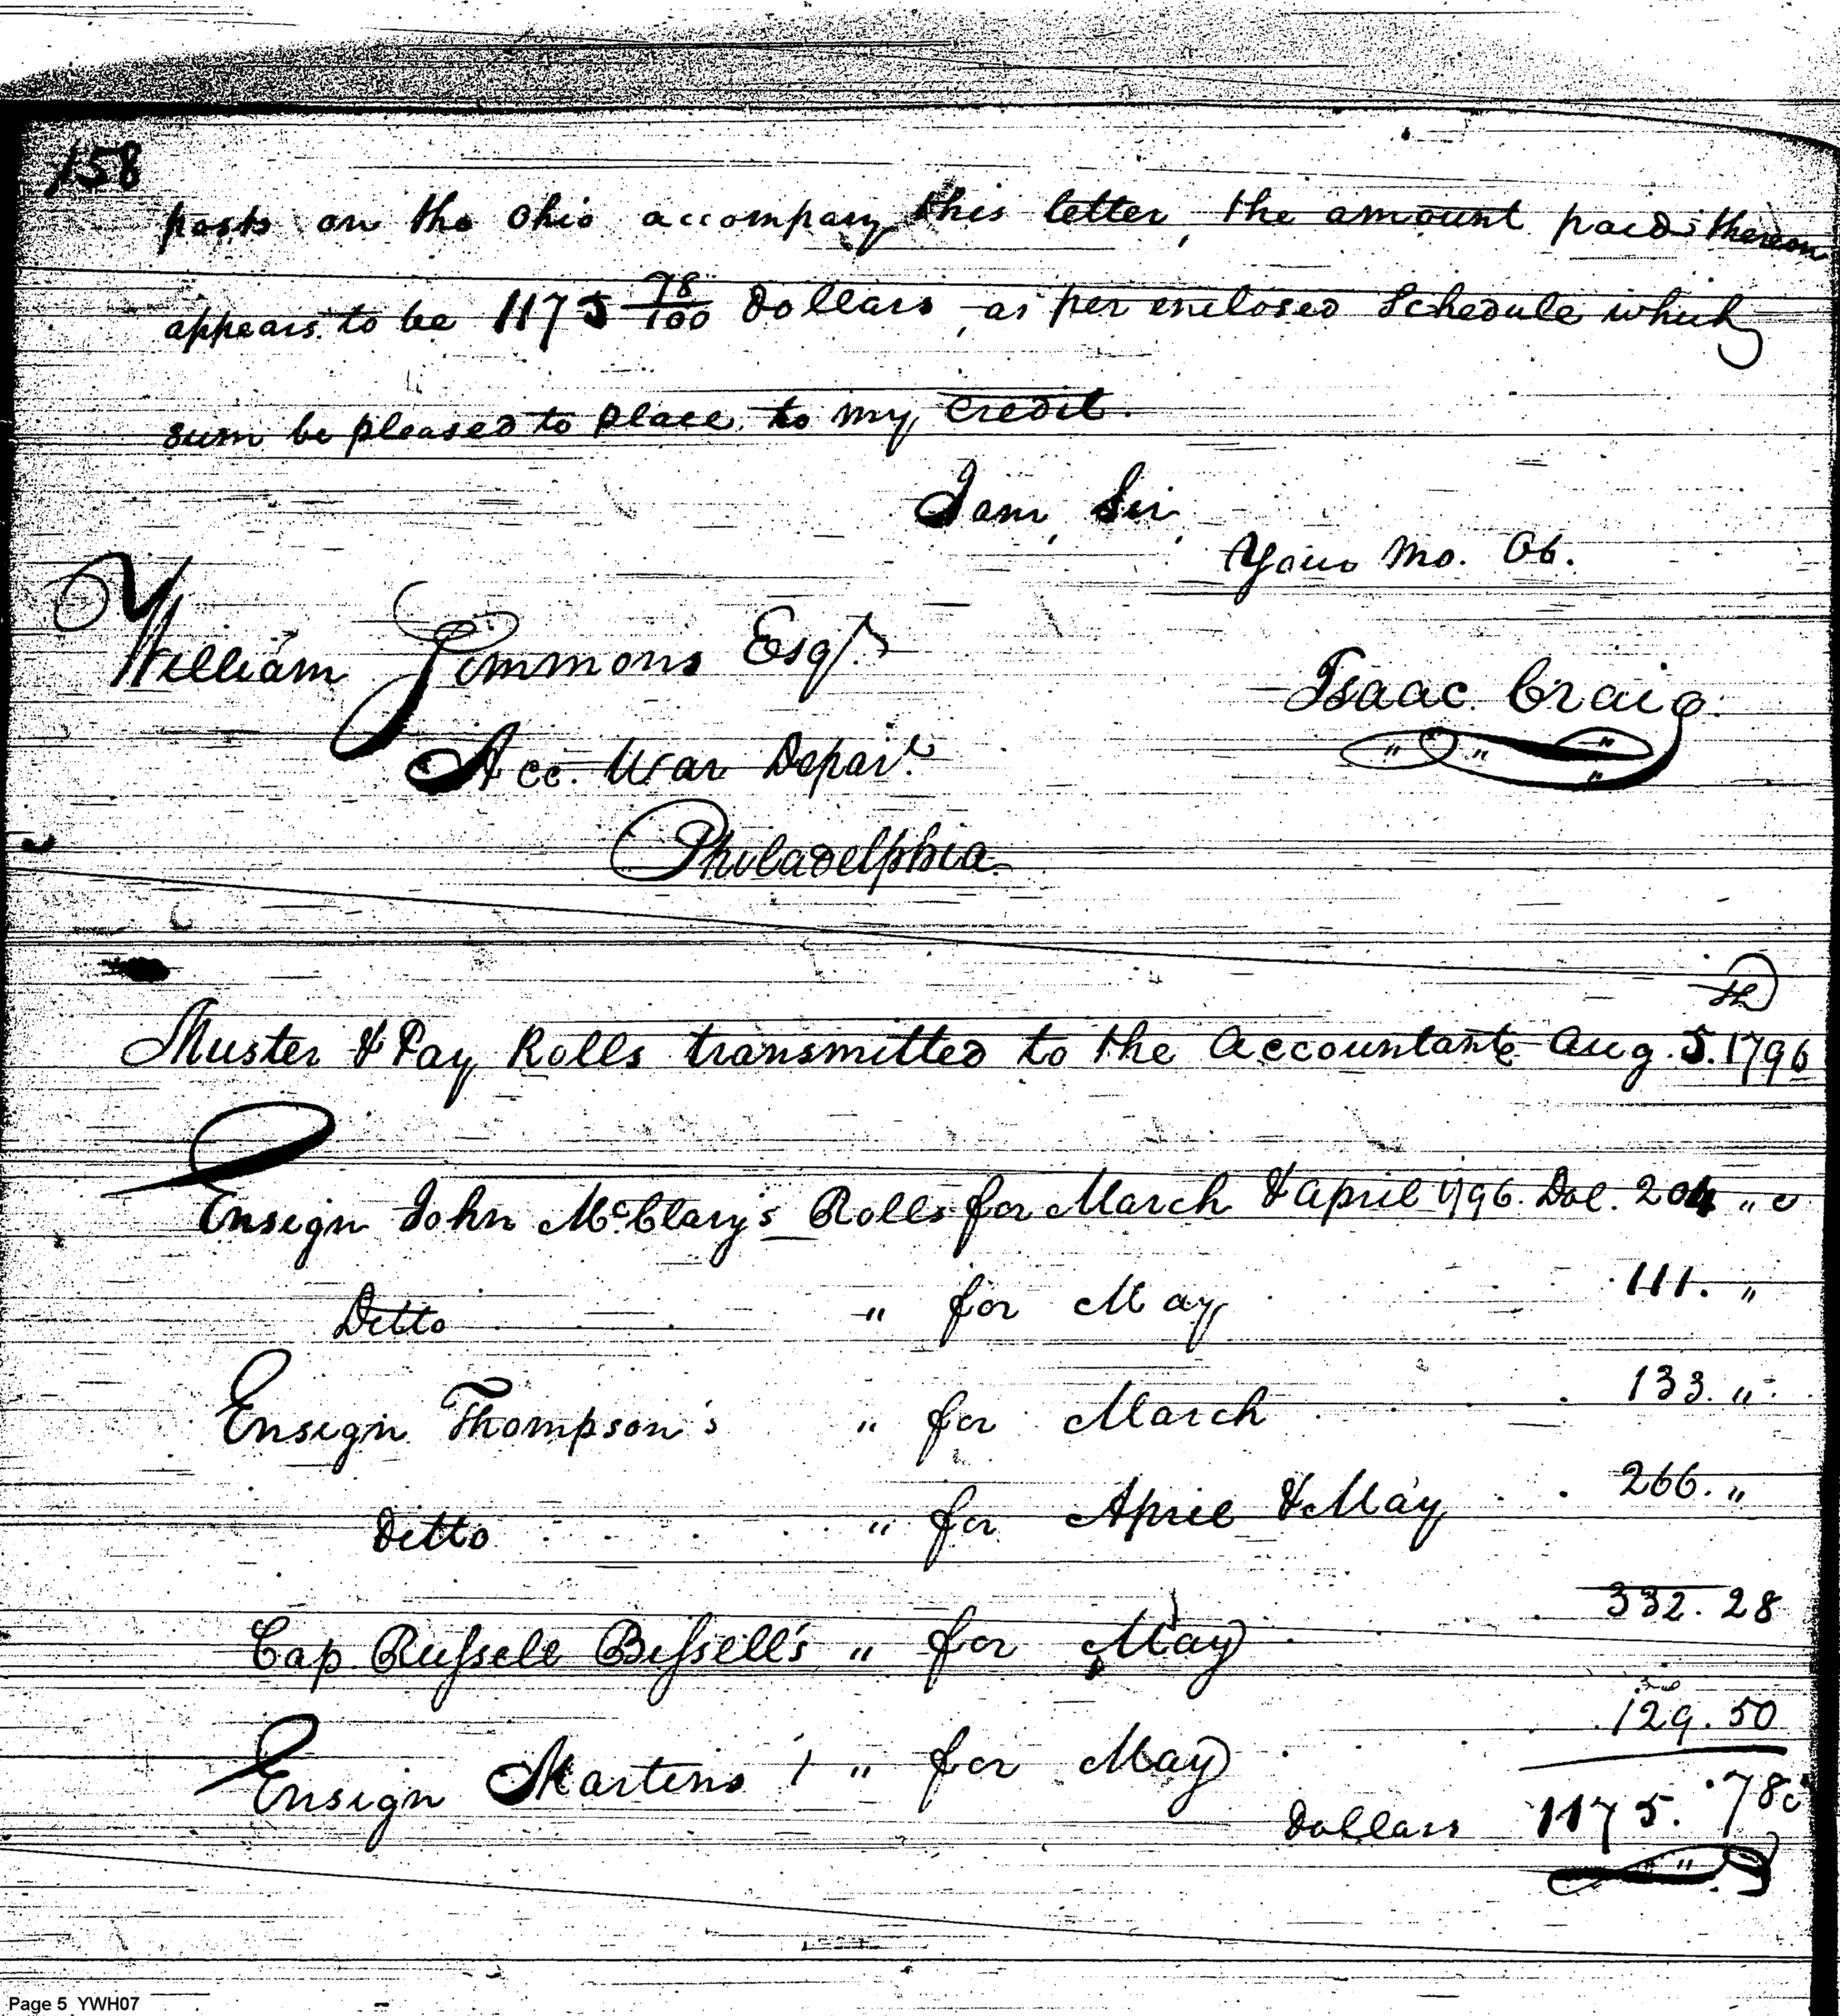 158
posts on the Ohio accompany this letter, the amount paid thereon
appears to be 1175 78/100 Dollars, as per enclosed Schedule which
sum be pleased to place to my credit.
I am, Sir,
Your Mo. Ob.
William Simmons Esqr.
Isaac Craig
Acc. War Depart.
Philadelphia
Muster & Pay Rolls transmitted to the Accountant Aug. 5th. 1796
Ensign John McClary's Rolls for March & April 1796. Dol. 204 " c
Ditto " for May 111. "
Ensign Thompson's " for March 133. "
Ditto " for April & May 266. "
Cap Russell Bissell's " for May 332. 28
Ensign Martins " for May 129. 50
Dollars 1175. 78c
Page 5 YWH07